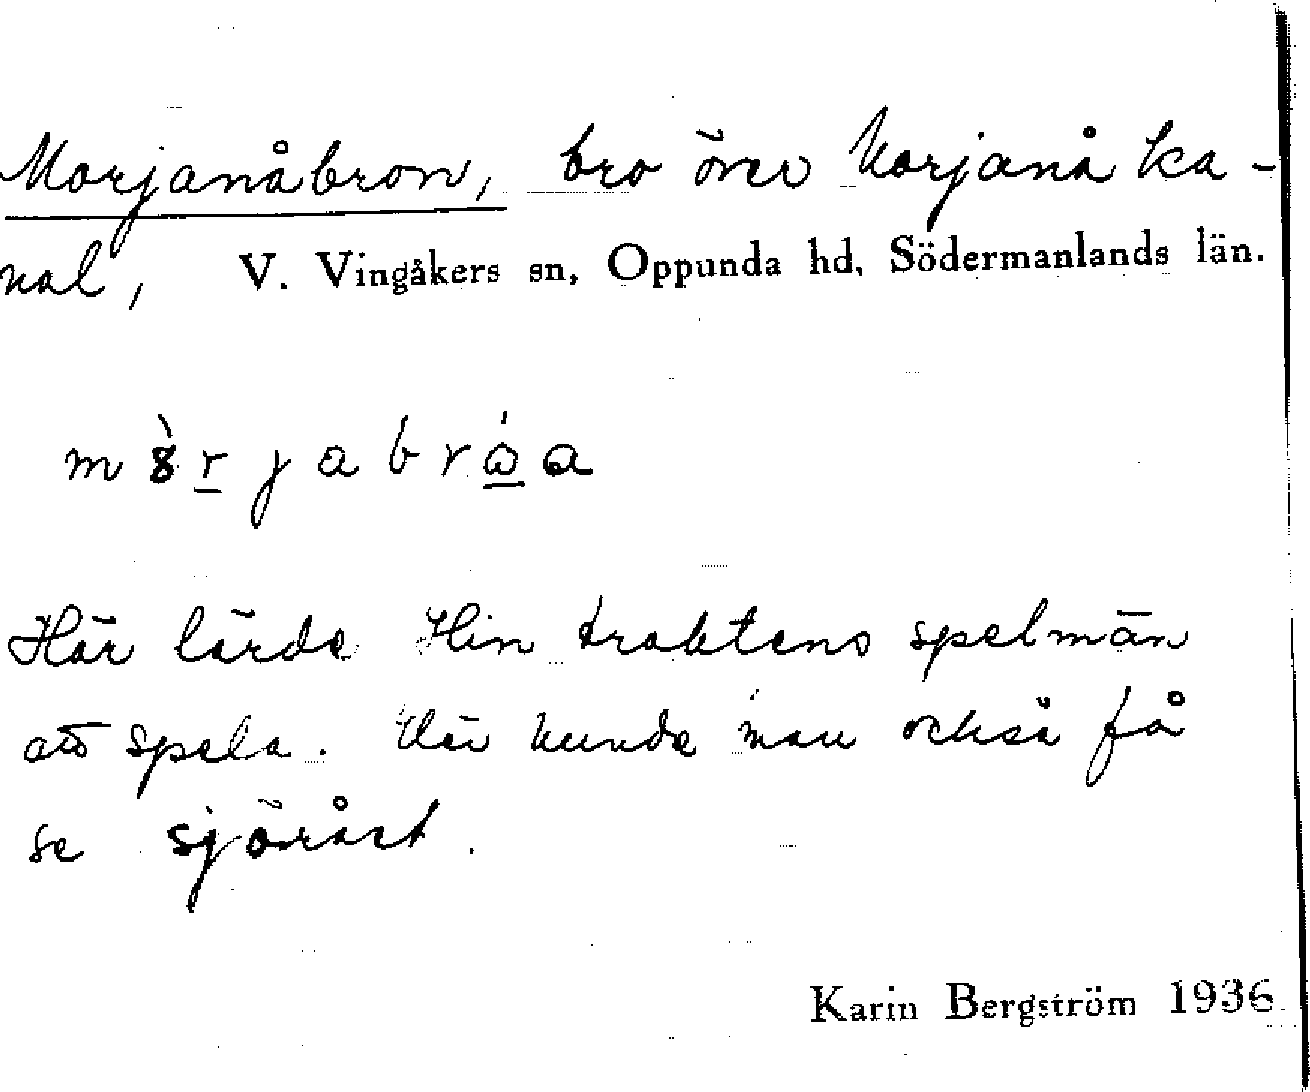 Morjanåbron, bro över Morjanå ka-
nal, V. Vingåkers sn, Oppunda hd, Södermanlands län.
Här lärde Hin traktens spelmän
att spela. Där kunde man också få
se sjörået.
Karin Bergström 1936